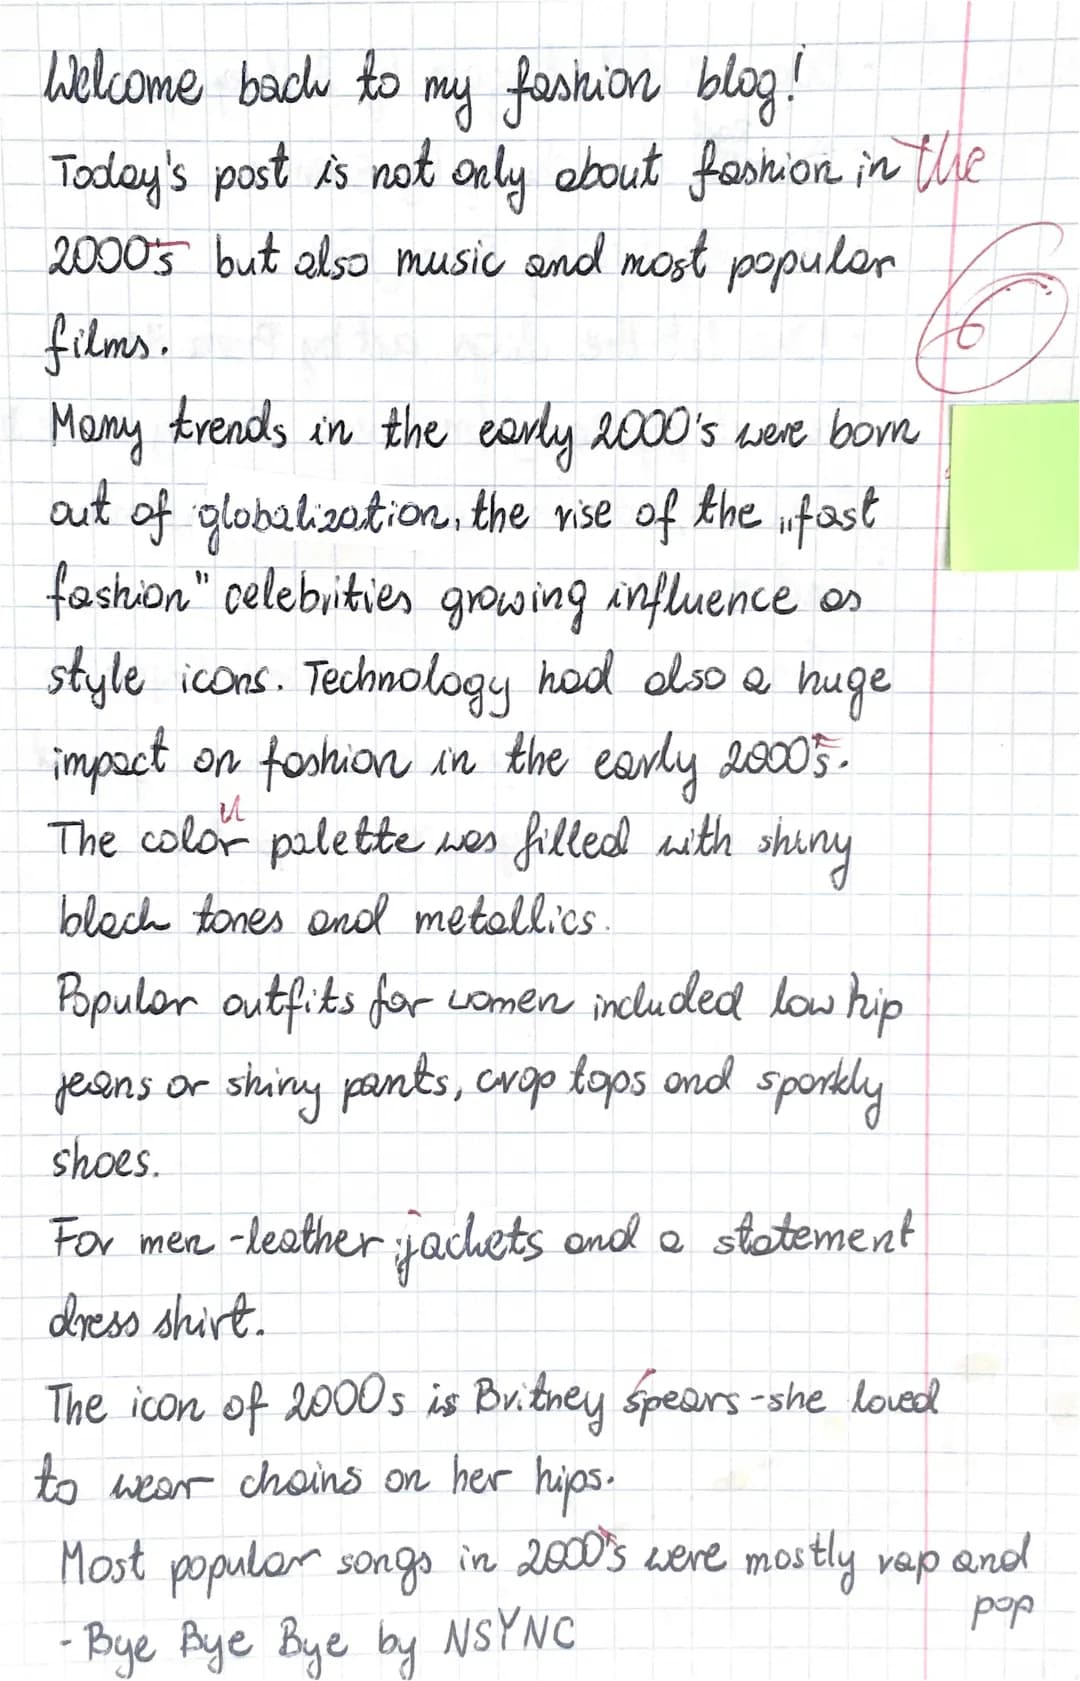 Welcome back to my fashion blog!
Today's post is not only about fashion in the
2000's but also music and most popular
films.
6
Many trends in the early 2000's were born
out of globalization, the rise of the „fast
fashion" celebrities growing influence as
style icons. Technology had also a huge
impact on fashion in the early 2000's.
u
The color palette was filled with shiny
black tones and metallics.
Popular outfits for women included low hip
jeans or shiny pants, crop tops and sparkly
shoes.
For men - leather jackets and a statement
dress shirt.
The icon of 2000s is Britney Spears - she loved
to wear chains on her hips.
Most popular songs in 2000's were mostly rap and
pop
- Bye Bye Bye by NSYNC